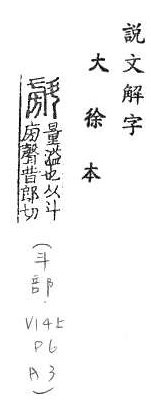 說文解字
大徐本
㪵
量溢也从斗
㫄聲普郎切
(斗部.V14下P6A3)